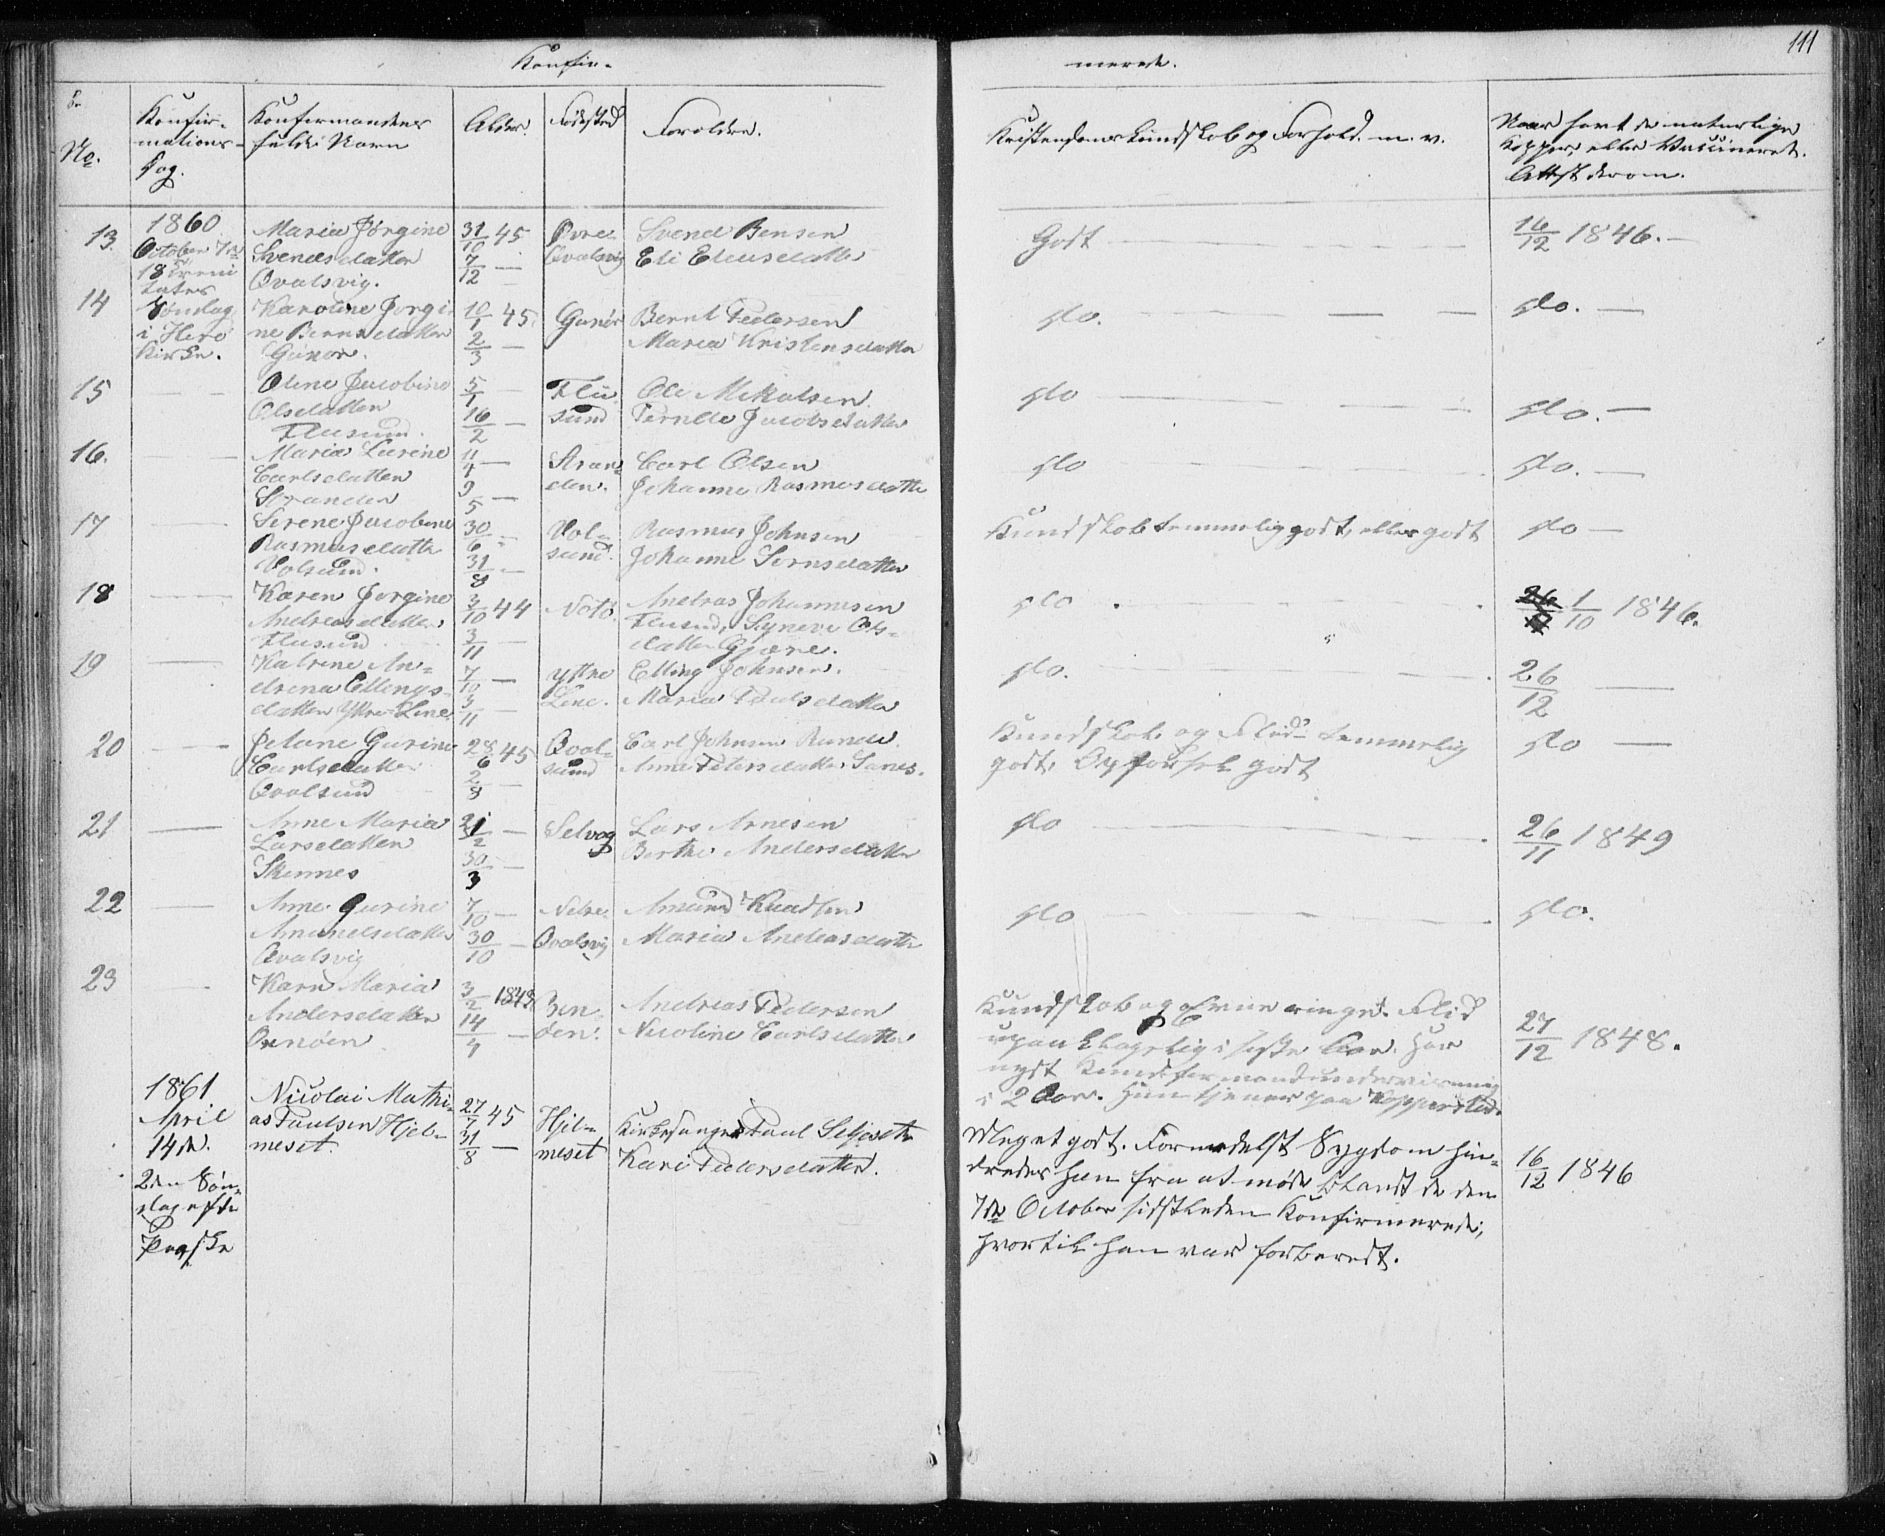 111
Konfir-
merede.
No.
Konfir-
mations-
Dag.
Konfirmandens
fulde Navn
Alder.
Fødested
Forældre.
Kristendoms Kundskab og Forhold m. v.
Naar havt de naturlige
Kopper, eller Vaccineret.
Attest derom.
13
1860
October 7de
18 Trini
tates
Maria Jørgine
Svendsdatter
Qvalsvig.
31/10 45
7/12 —
Øvre
Qvalsvig
Svend Bensen
Eli Eliasdatter
Godt
16/12 1846. —
14
Søndag
i Herö
Kirke.
Karoline Jørgi
ne Berntsdatter
10/1 45
2/3 —
Bernt Pedersen
Maria Kristensdatter
do.
do. —
15
Oline Jacobine
Olsdatter
Flusund.
5/1 —
16/2 —
Flu
sund
Ole Mikalsen
Pernille Jacobsdatter
do
do. —
16.
Maria Lurine
Carlsdatter
Stranden
11/4 —
9/5 —
Stran
den.
Carl Olsen
Johanne Rasmusdatter
do
do. —
17
Serene Jacobine
Rasmusdatter
Volsund.
30/6 —
31/8 —
Vol-
sund.
Rasmus Johnsen
Johanne Sernsdatter
Kundskab temmelig godt, ellers godt
do —
18
Karen Jørgine
Andreasdatter
Flusund
3/10 44
3/11 —
Notö.
Andreas Johannesen
Flusund, Syneve Ols-
datter Gjøre.
do
1/10 1846.
19
Katrine An-
drena Ellings-
datter Yttre Line
7/10 —
3/11 —
Yttre
Line.
Elling Johnsen.
Maria Paulsdatter
do.
26/12 —
20
Jetane Gurine
Carlsdatter
Qvalsund
28/6 45
2/8 —
Qval-
sund
Carl Johnsen Runde.
Anne Petersdatter Sanes.
Kundskab og Flid temmelig
godt, Opførsel godt
do —
21
Anne Maria
Larsdatter
Skinnes
30/3 —
Selvog
Lars Arnesen
Berthe Andersdatter
do
26/11 1849
22
Anne Gurine
Amundsdatter
Qvalsvig
7/10 —
30/10 —
Nedre
Qvalsvig
Amund Knudsen
Maria Andreasdatter
do
do.
23
Karn Maria
Andersdatter
3/2 1843
14/4 —
Andreas Pedersen
Nicoline Carlsdatter
Kundskab og Evne ringe. Flid
upaaklagelig i sidste Aar. Har
nydt Konfirmandundervisning
i 2 Aar. Hun tjener paa Kopperstad.
27/12 1848.
1861
April
14de.
2den Søn-
dag efter
Paaske
Nicolai Mathi-
as Paulsen Hjel-
meset.
27/7 45
31/8 —
Hjel-
meset
Kirkesanger Paul Seljeseth
Kari Pedersdatter.
Meget godt. Formedelst Sygdom hin-
dredes han fra at møde blandt de den
7de October sidstleden Konfirmerede;
hvortil han var forberedt.
16/12 1846